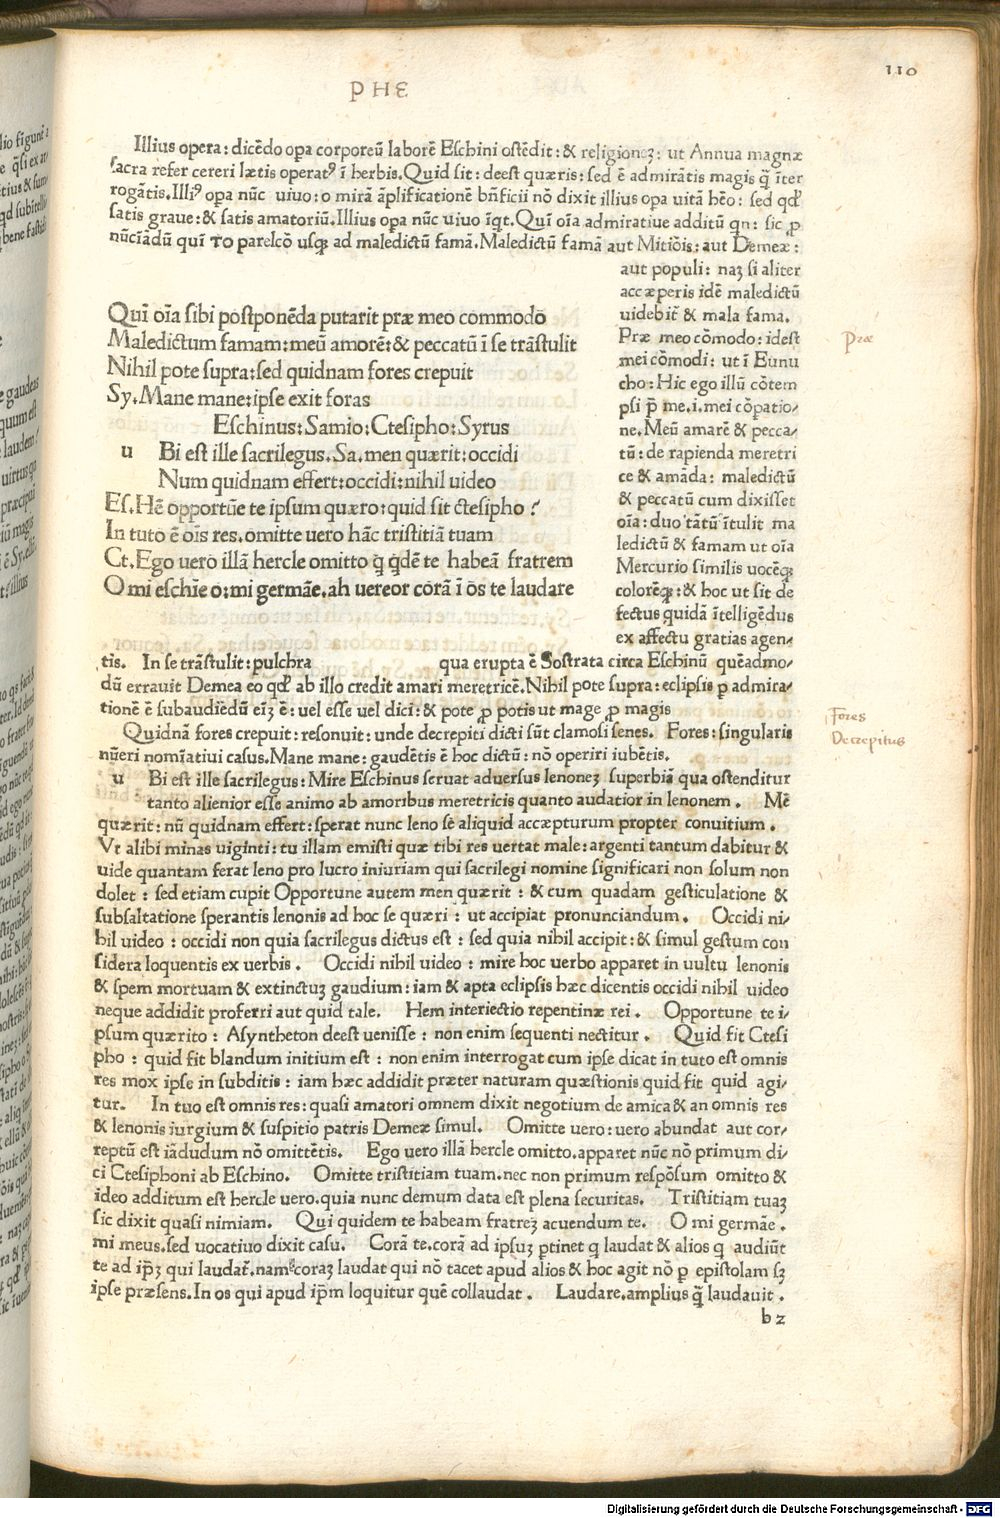 110
PHE
Illius opera: dicēdo oꝑa corporeū laborē Eschini ostēdit: & religioneꝫ: ut Annua magnæ
sacra refer cereri lætis operatꝰ ī herbis. Quid sit: deest quæris: sed ē admirātis magis q̄ īter
rogātis. Illiꝰ oꝑa nūc uiuo: o mirā āplificationē bn̄ficii nō dixit illius oꝑa uitā hēo: sed qđ
satis graue: & satis amatoriū. Illius oꝑa nūc uiuo īqt. Quī oīa admiratiue additū qn: sic ꝓ
nūcīadū quī TO parelcō usqꝫ ad maledictū famā. Maledictū famā aut Mitiōis: aut Demeæ:
aut populi: naꝫ si aliter
accæperis idē maledictū
uidebit̄ & mala fama.
Præ meo cōmodo: idest
mei cōmodi: ut ī Eunu
cho: Hic ego illū cōtem
psi p̄ me. i. mei cōpatio/
ne. Meū amarē & pecca/
tū: de rapienda meretri
ce & amāda: maledictū
& peccatū cum dixisset
oīa: duo tātū ītulit ma
ledictū & famam ut oīa
Mercurio similis uocēqꝫ
colorēqꝫ: & hoc ut sit de
fectus quidā ītelligēdus
ex affectu gratias agen/
Præ
Quī oīa sibi postponēda putarit præ meo commodo
Maledictum famam: meū amorē: & peccatū ī se trāstulit
Nihil pote supra: sed quidnam fores crepuit
Sy. Mane mane: ipse exit foras
Eschinus: Samio: Ctesipho: Syrus
u Bi est ille sacrilegus. Sa. men quærit: occidi
Num quidnam effert: occidi: nihil uideo
Es. Hē opportūe te ipsum quæro: quid sit ctesipho ?
In tuto ē oīs res. omitte uero hāc tristitiā tuam
Ct. Ego uero illā hercle omitto q̄ q̄dē te habeā fratrem
O mi eschīe o: mi germāe. ah uereor corā ī os te laudare
tis. In se trāstulit: pulchra qua erupta ē Sostrata circa Eschinū quēadmo/
dū errauit Demea eo qđ ab illo credit amari meretricē. Nihil pote supra: eclipsis ꝑ admira/
tionē ē subaudiēdū eīꝫ ē: uel esse uel dici: & pote ꝓ potis ut mage ꝓ magis
Quidnā fores crepuit: resonuit: unde decrepiti dicti sūt clamosi senes. Fores: singularis
nūeri nomīatiui casus. Mane mane: gaudētis ē hoc dictū: nō operiri iubētis.
Fores
Decrepitus
u Bi est ille sacrilegus: Mire Eschinus seruat aduersus lenoneꝫ superbiā qua ostenditur
tanto alienior esse animo ab amoribus meretricis quanto audatior in lenonem. Mē
quærit: nū quidnam effert: sperat nunc leno se aliquid accæpturum propter conuitium.
Vt alibi minas uiginti: tu illam emisti quæ tibi res uertat male: argenti tantum dabitur &
uide quantam ferat leno pro lucro iniuriam qui sacrilegi nomine significari non solum non
dolet: sed etiam cupit Opportune autem men quærit: & cum quadam gesticulatione &
subsaltatione sperantis lenonis ad hoc se quæri: ut accipiat pronunciandum. Occidi ni/
hil uideo: occidi non quia sacrilegus dictus est: sed quia nihil accipit: & simul gestum con
sidera loquentis ex uerbis. Occidi nihil uideo: mire hoc uerbo apparet in uultu lenonis
& spem mortuam & extinctuꝫ gaudium: iam & apta eclipsis hæc dicentis occidi nihil uideo
neque addidit proferri aut quid tale. Hem interiectio repentinæ rei. Opportune te i/
psum quærito: Asyntheton deest uenisse: non enim sequenti nectitur. Quid fit Ctesi
pho: quid fit blandum initium est: non enim interrogat cum ipse dicat in tuto est omnis
res mox ipse in subditis: iam hæc addidit præter naturam quæstionis quid fit quid agi/
tur. In tuo est omnis res: quasi amatori omnem dixit negotium de amica & an omnis res
& lenonis iurgium & suspitio patris Demeæ simul. Omitte uero: uero abundat aut cor/
reptū est iādudum nō omittētis. Ego uero illā hercle omitto. apparet nūc nō primum di/
ci Ctesiphoni ab Eschino. Omitte tristitiam tuam. nec non primum respōsum omitto &
ideo additum est hercle uero. quia nunc demum data est plena securitas. Tristitiam tuaꝫ
sic dixit quasi nimiam. Qui quidem te habeam fratreꝫ acuendum te. O mi germāe.
mi meus. sed uocatiuo dixit casu. Corā te. corā ad ipsuꝫ ꝑtinet q laudat & alios q audiūt
te ad ip̄ꝫ qui laudat̄. nam coraꝫ laudat qui nō tacet apud alios & hoc agit nō ꝑ epistolam sꝫ
ipse præsens. In os qui apud ip̄m loquitur quē collaudat. Laudare. amplius q̄ laudauit.
b 2
Digitalisierung gefördert durch die Deutsche Forschungsgemeinschaft - DFG